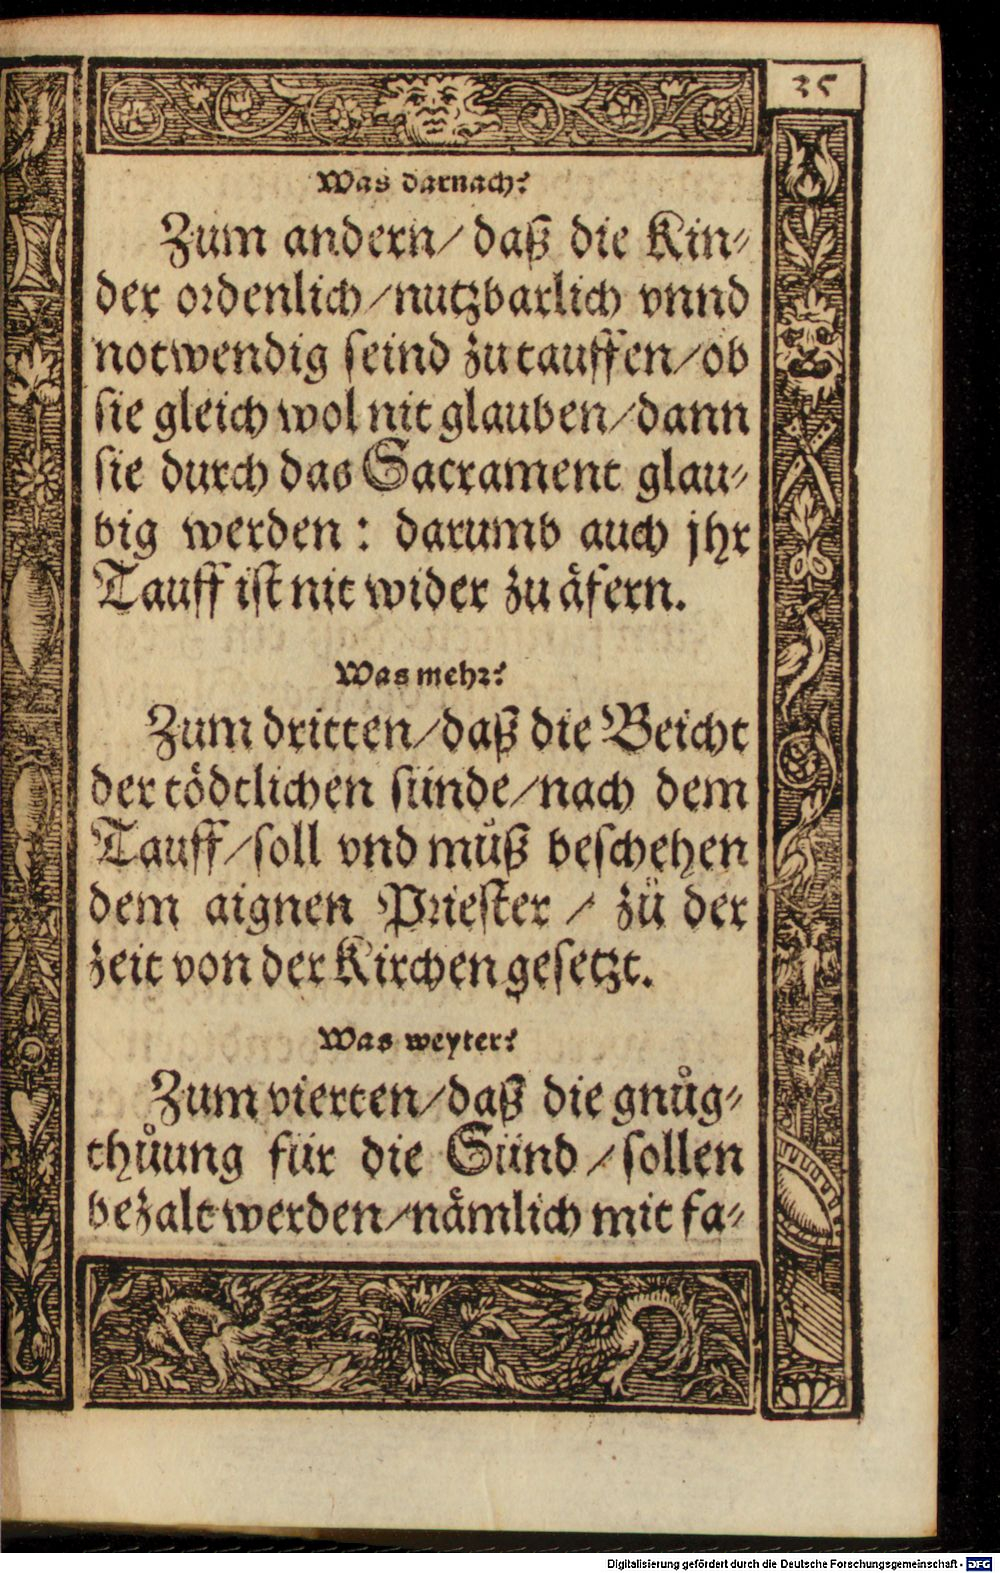 35
Was darnach?
Zum andern/ daß die Kin-
der ordenlich/nutzbarlich vnnd
notwendig seind zu tauffen/ob
sie gleich wol nit glauben/dann
sie durch das Sacrament glau-
big werden : darumb auch jhr
Tauff ist nit wider zu äfern.
Was mehr?
Zum dritten/daß die Beicht
der tödtlichen sünde/nach dem
Tauff/soll vnd muß beschehen
dem aignen Priester / zů der
zeit von der Kirchen gesetzt.
Was weyter?
Zum vierten/daß die gnůg-
thůung für die Sünd/sollen
bezalt werden/nämlich mit fa-
Digitalisierung gefördert durch die Deutsche Forschungsgemeinschaft - DFG